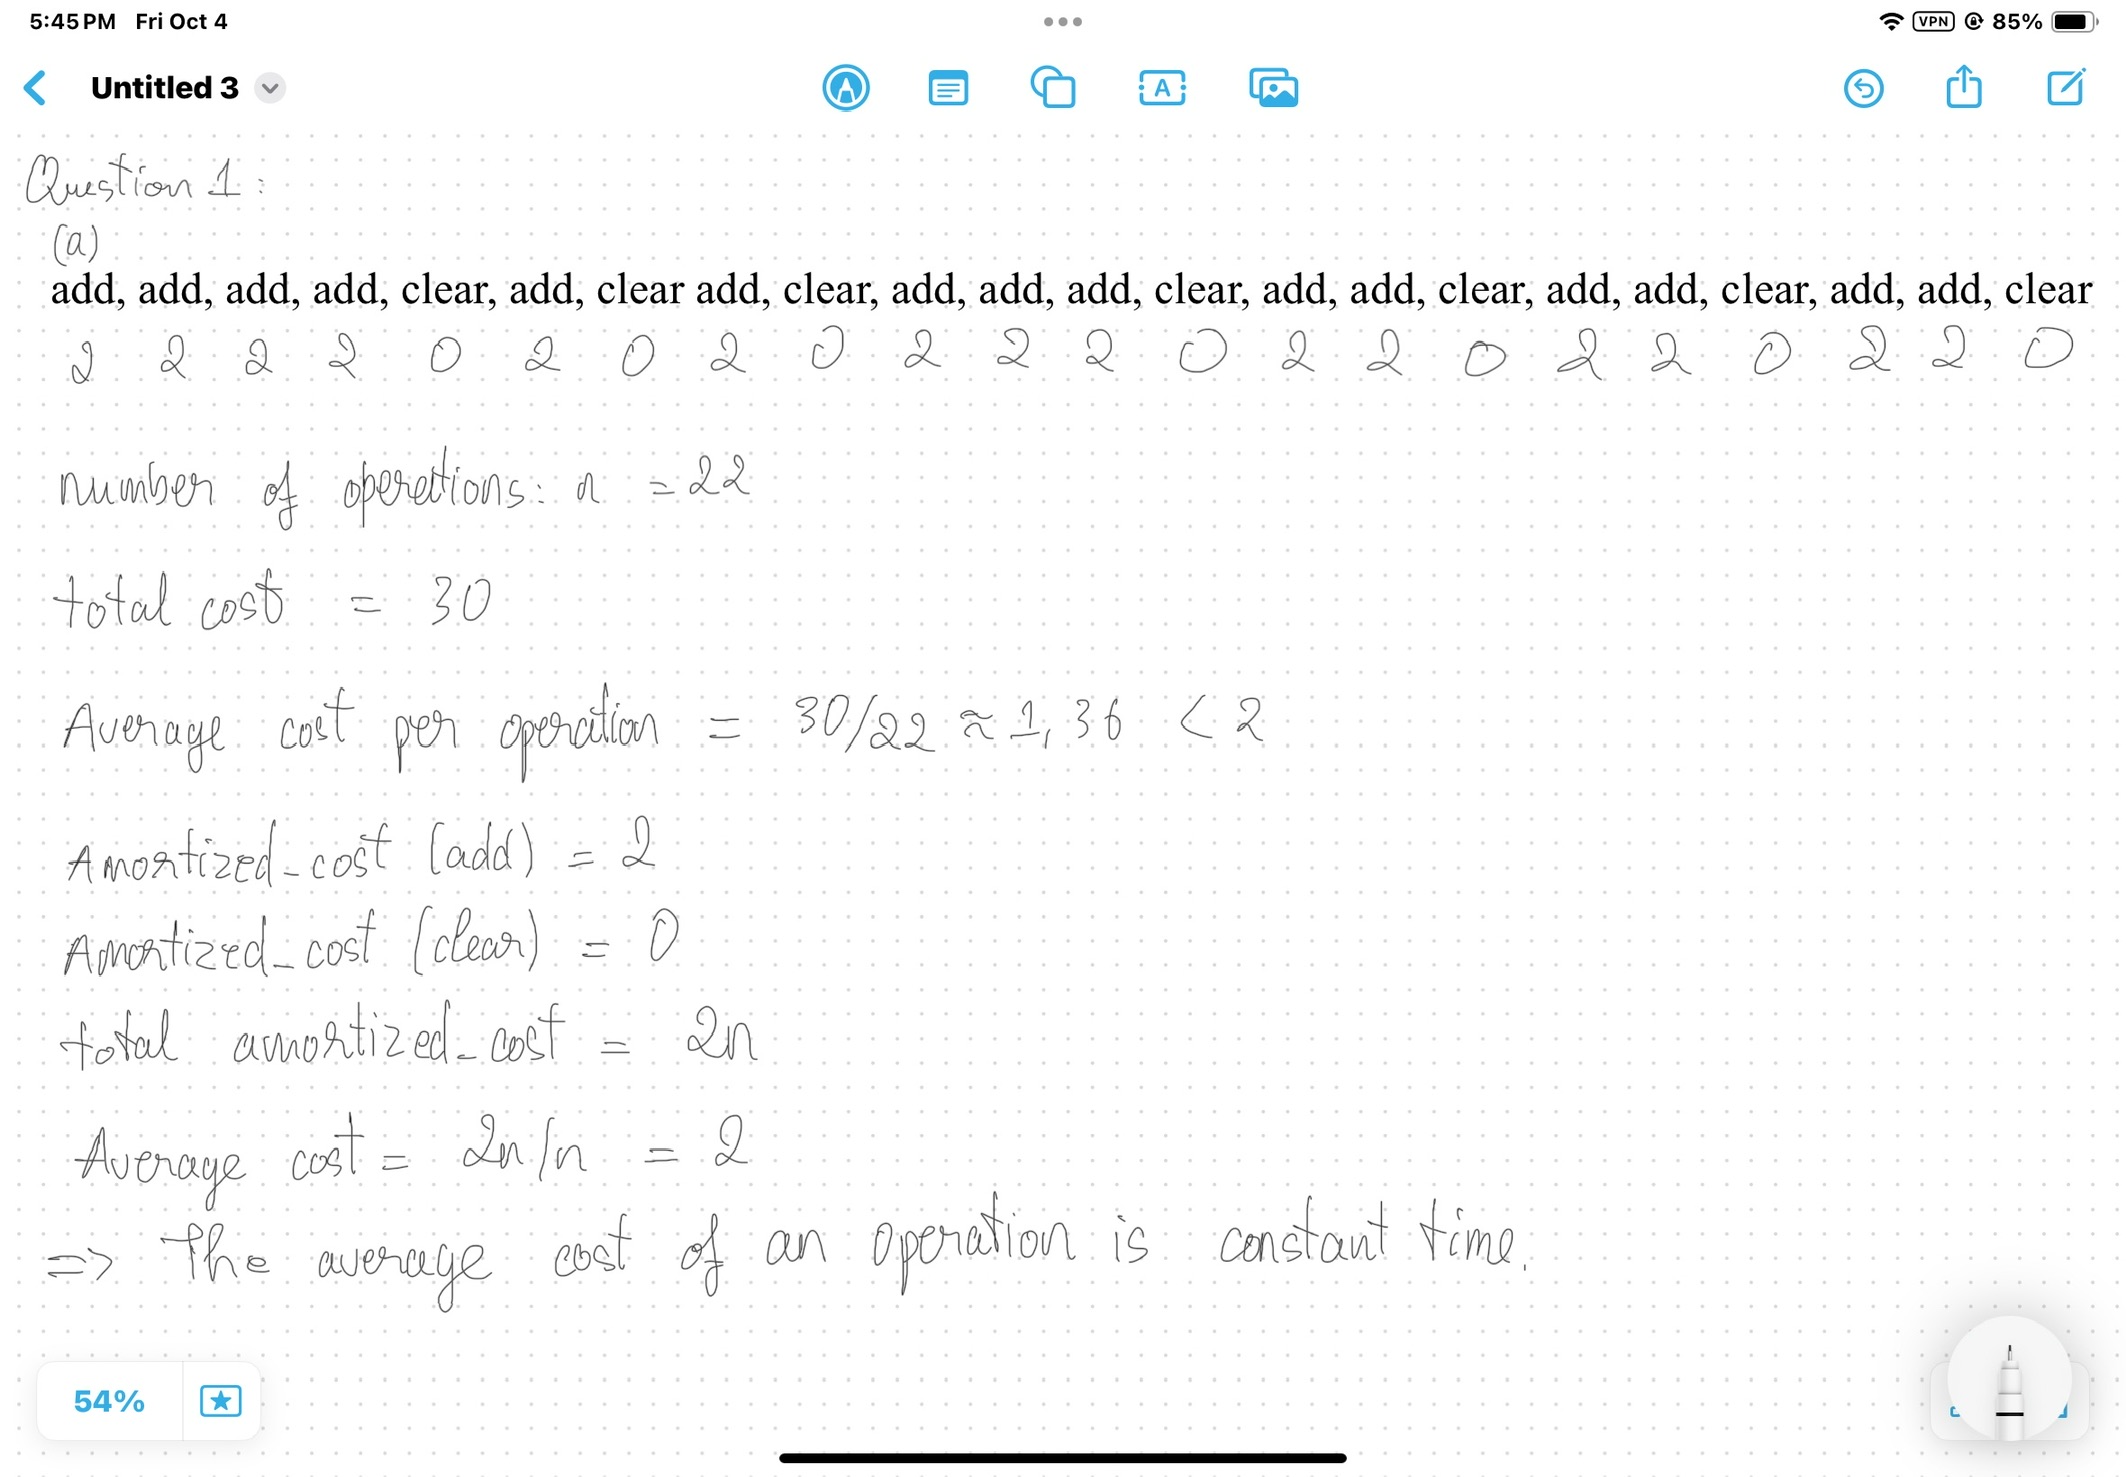 5:45 PM Fri Oct 4
VPN 85%
Untitled 3
Question 1:
(a)
add, add, add, add, clear, add, clear add, clear, add, add, add, clear, add, add, clear, add, add, clear, add, add, clear
2 2 2 2 0 2 0 2 0 2 2 2 0 2 2 0 2 2 0 2 2 0
number of operations: n = 22
total cost = 30
Average cost per operation = 30/22 ≈ 1,36 < 2
Amortized_cost (add) = 2
Amortized_cost (clear) = 0
total amortized_cost = 2n
Average cost = 2n/n = 2
=> The average cost of an operation is constant time.
54%